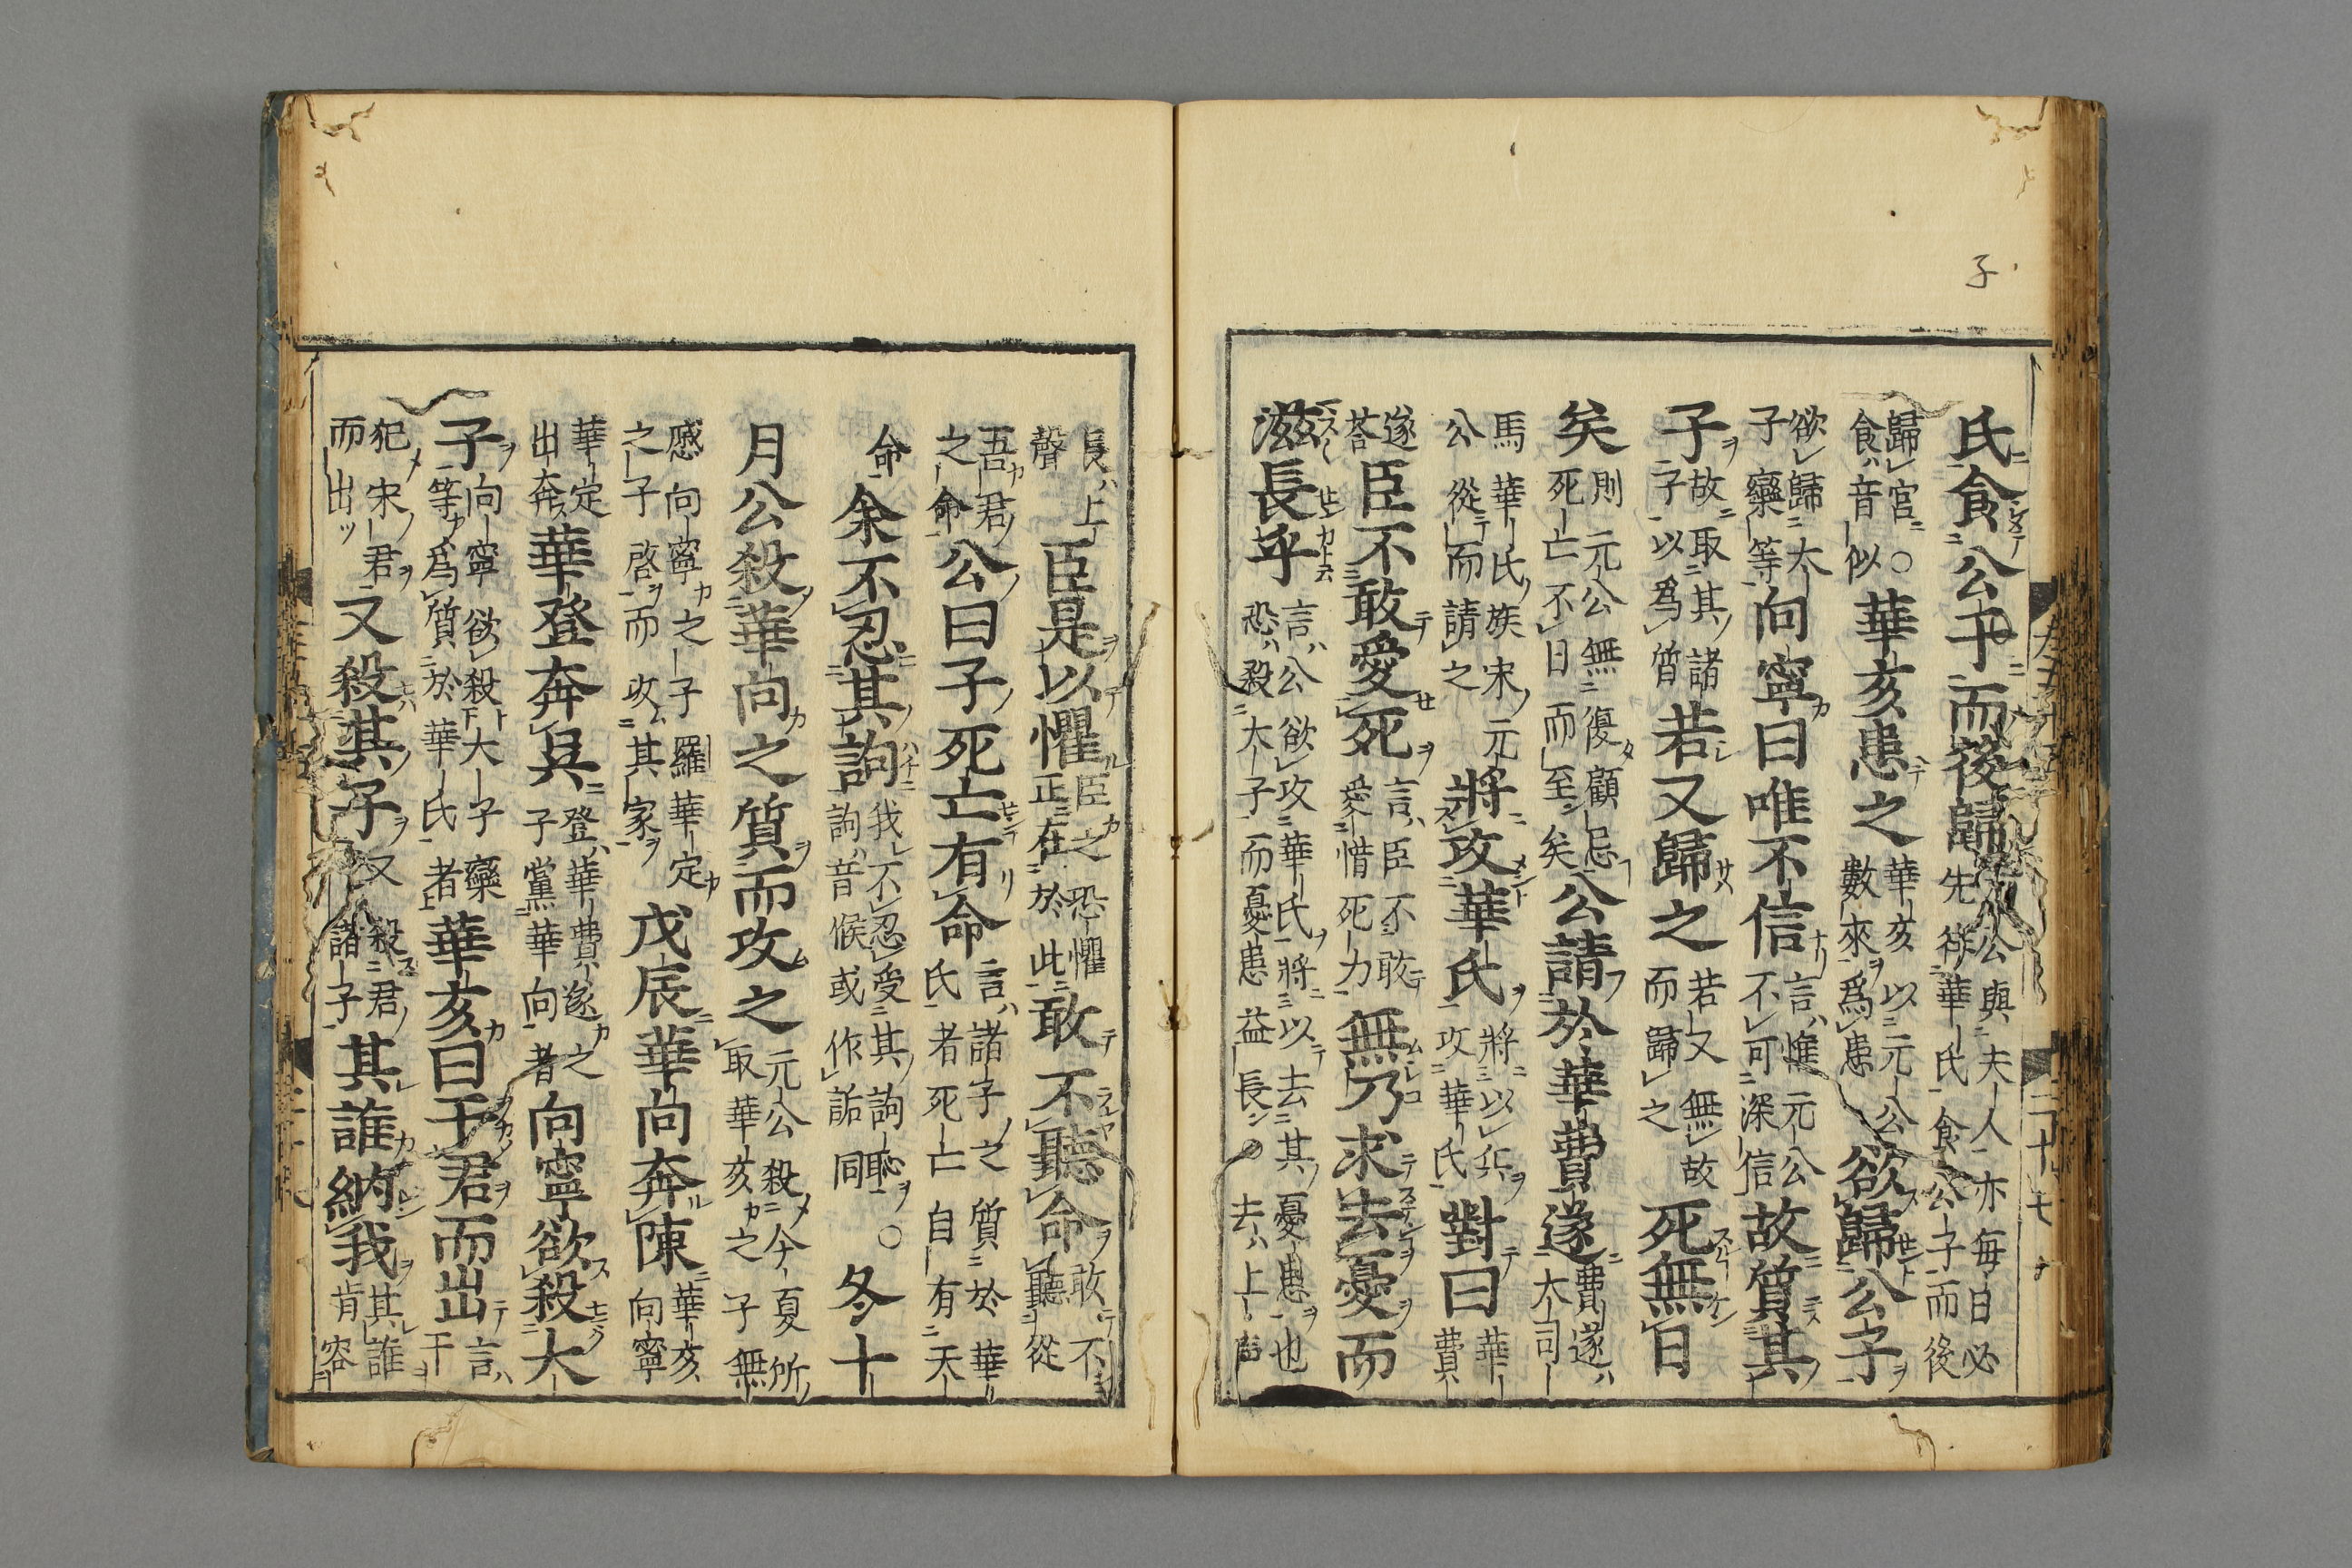 子
氏食公子而後歸公與夫人亦每日必先徃華氏食公子而後
歸宮○食音似華亥患之華亥以元公數來爲患欲歸公子
欲歸太子欒等向寧曰唯不信言惟元公不可深信故質其
子故取其諸子以爲質若又歸之若又無故而歸之死無日
矣則元公無復顧忌死亡不日而至矣公請於華費遂費遂大司
馬華氏族宋元公從而請之將攻華氏將以兵攻華氏對曰華費
遂荅臣不敢愛死言臣不敢愛惜死力無乃求去憂而
滋長乎言公欲攻華氏將以去其憂患也恐殺大子而憂患益長○去上聲
長上聲臣是以懼臣之恐懼正在於此敢不聽命敢不聽從
吾君之命公曰子死亡有命言諸子之質於華氏者死亡自有天
命余不忍其訽我不忍受其訽恥○訽音候或作詬同冬十
月公殺華向之質而攻之元公殺今夏所取華亥之子無
慼向寧之子羅華定之子啓而攻其家戊辰華向奔陳華亥向寧
華定出奔華登奔吳登華費遂之子黨華向者向寧欲殺大
子向寧欲殺大子欒等爲質於華氏者華亥曰干君而出言干
犯宋君而出又殺其子又殺君諸子其誰納我其誰肯容